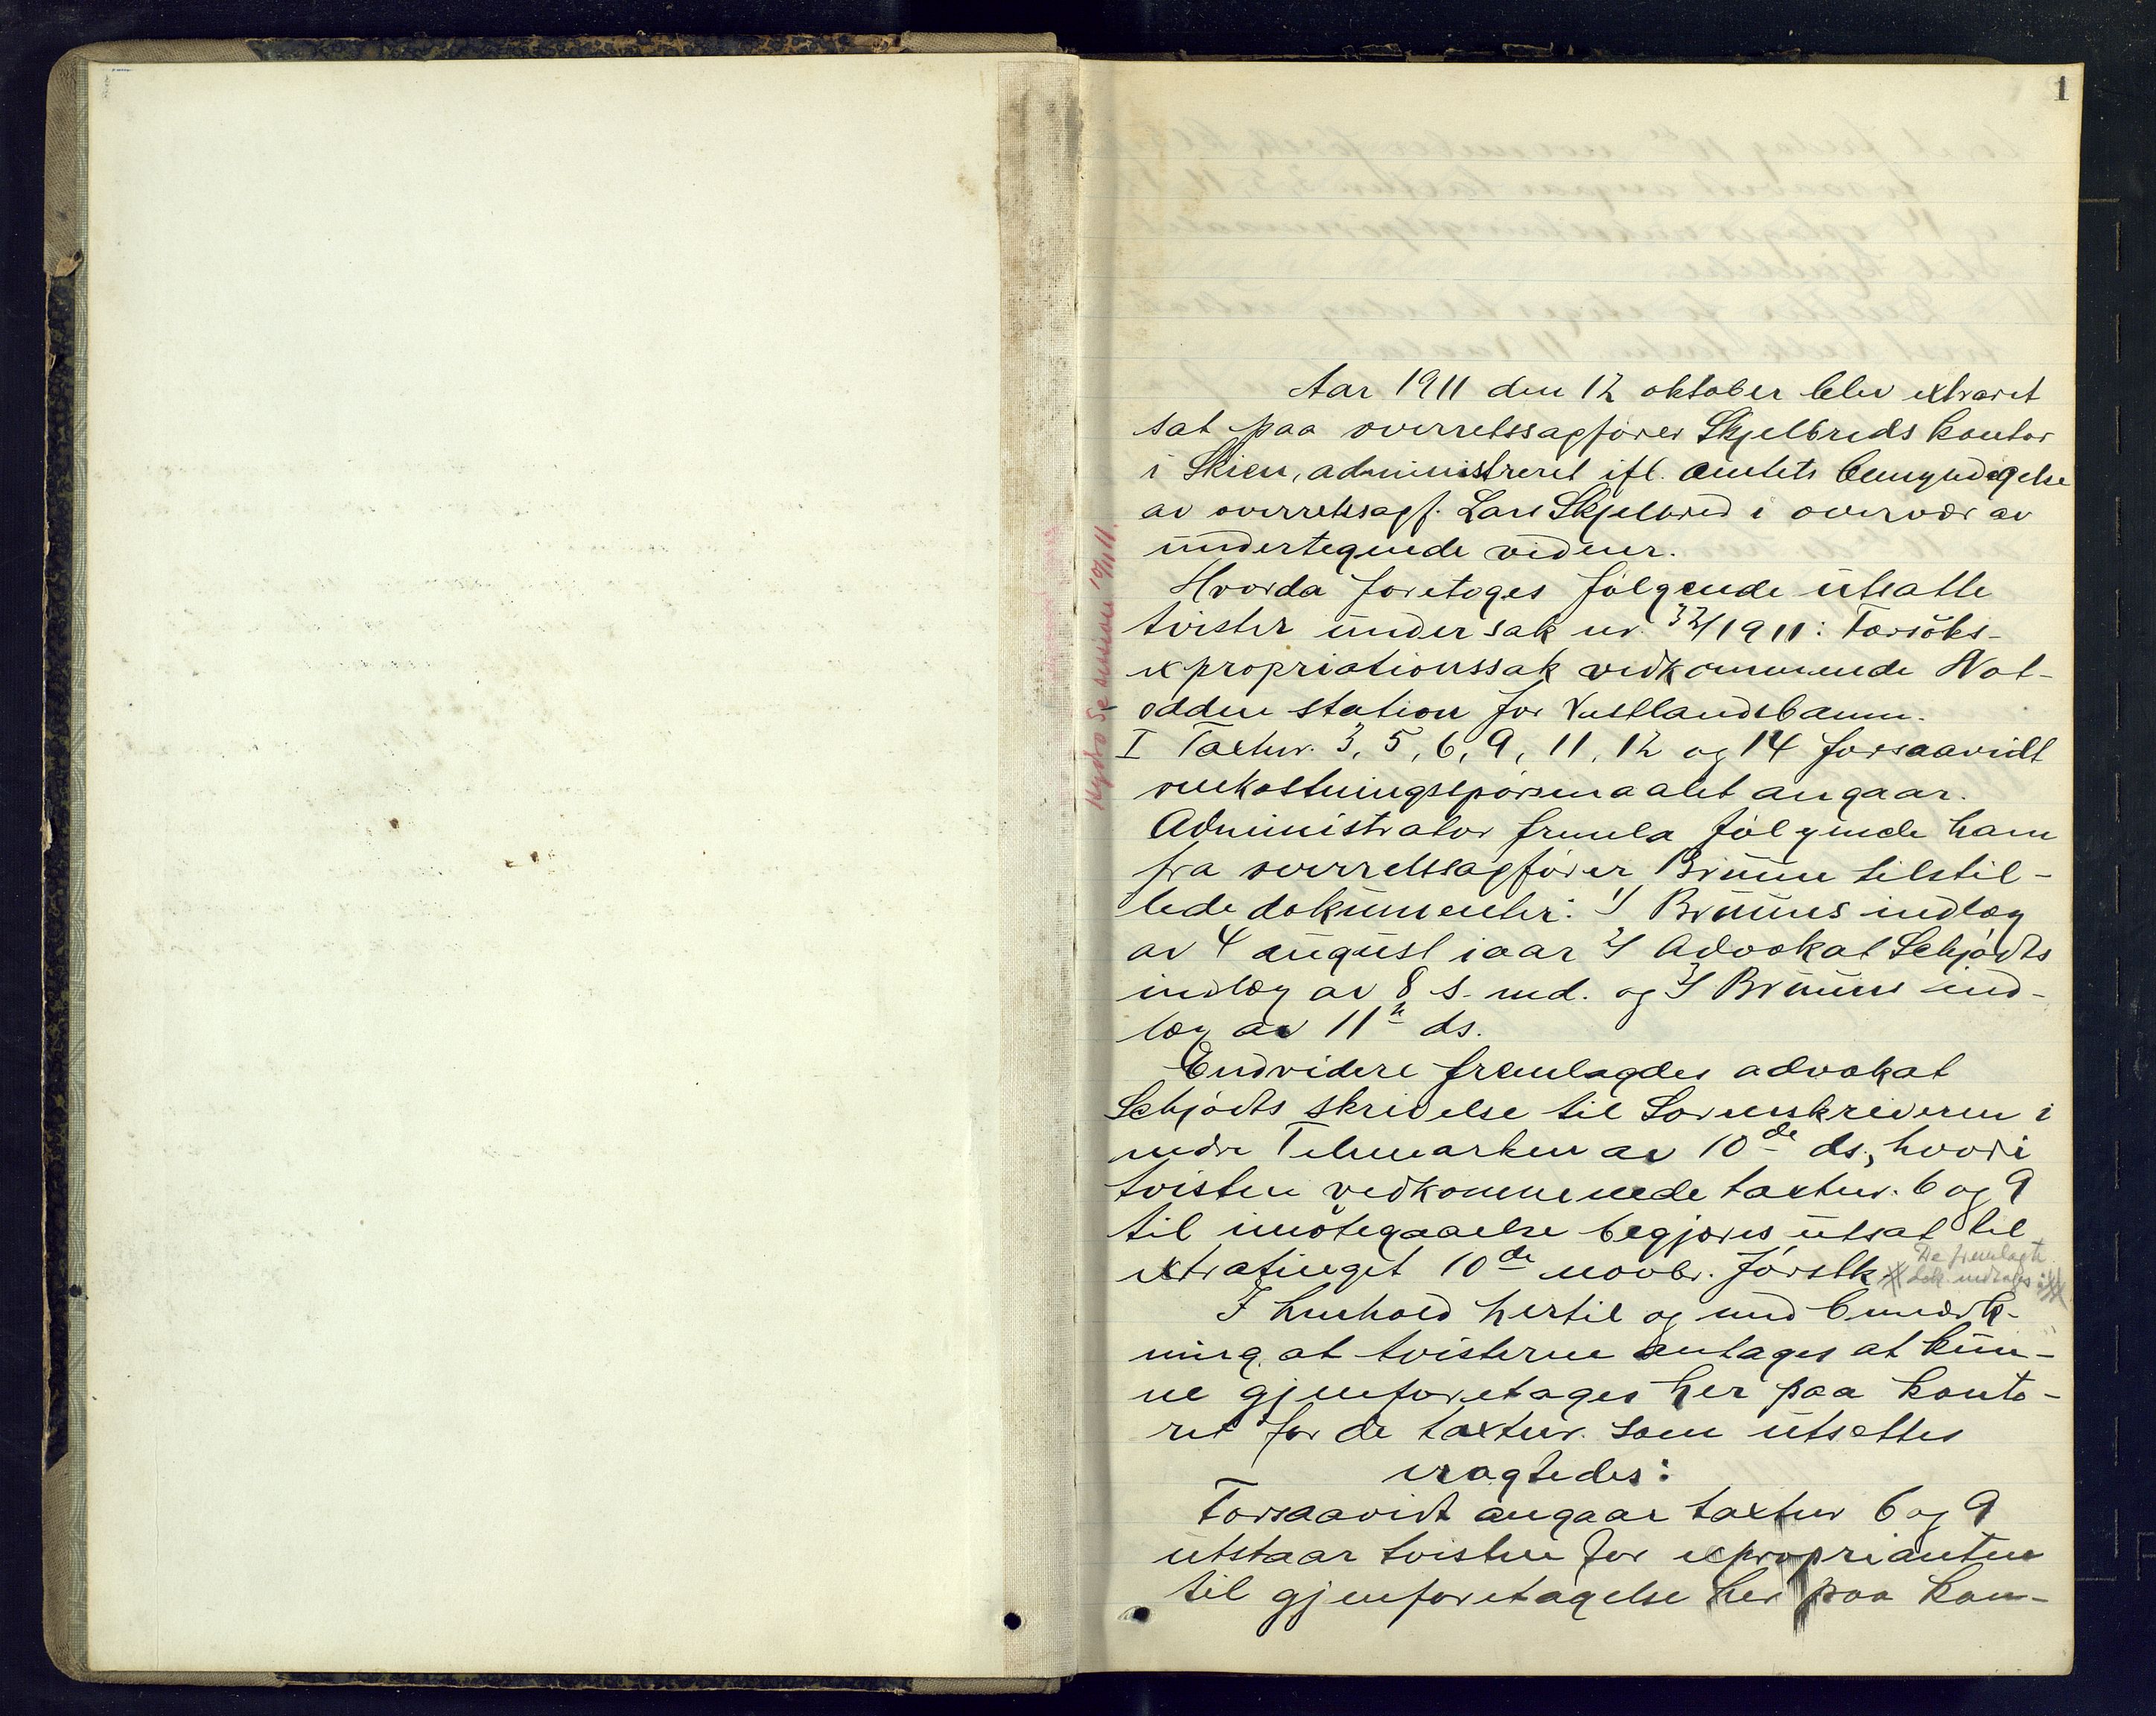 1
Aar 1911 den 12 oktober blev extraret
sat paa overretssagfører Skjelbreds kontor
i Skien, administreret ifl. amtets bemyndigelse
av overretssagf. Lars Skjelbred i overvær av
undertegnede vidner.
Hvorda foretoges følgende utsatte
tvister under sak nr. 32/1911: Forsøks-
expropriationssak vedkommende Not-
odden station for Vestlandsbanen.
I Taxtnr. 3, 5, 6, 9, 11, 12 og 14 forsaavidt
omkostningsspørsmaalet angaar.
Administrator fremla følgende ham
fra overretssagfører Bruun tilstil-
lede dokumenter: 1/ Bruuns indlæg
av 4 august iaar 2/ Advokat Schjødts
indlæg av 8 s. md. og 3/ Bruuns ind-
læg av 11te ds.
Endvidere fremlagdes advokat
Schjødts skrivelse til Sorenskriveren i
nedre Telemarken av 10de ds., hvori
tvisten vedkommende taxtnr. 6 og 9
til imøtegaaelse begjæres utsat til
extratinget 10de novbr. førstk.
De fremlagte
dok. indtages
I henhold hertil og med bemærk-
ning at tvisterne antages at kun-
ne gjenforetages her paa konto-
ret for de taxtnr. som utsættes
eragtedes:
Forsaavidt angaar taxtnr 6 og 9
utstaar tvisten for exproprianten
til gjenforetagelse her paa kon-
Hydro 10/11 11.